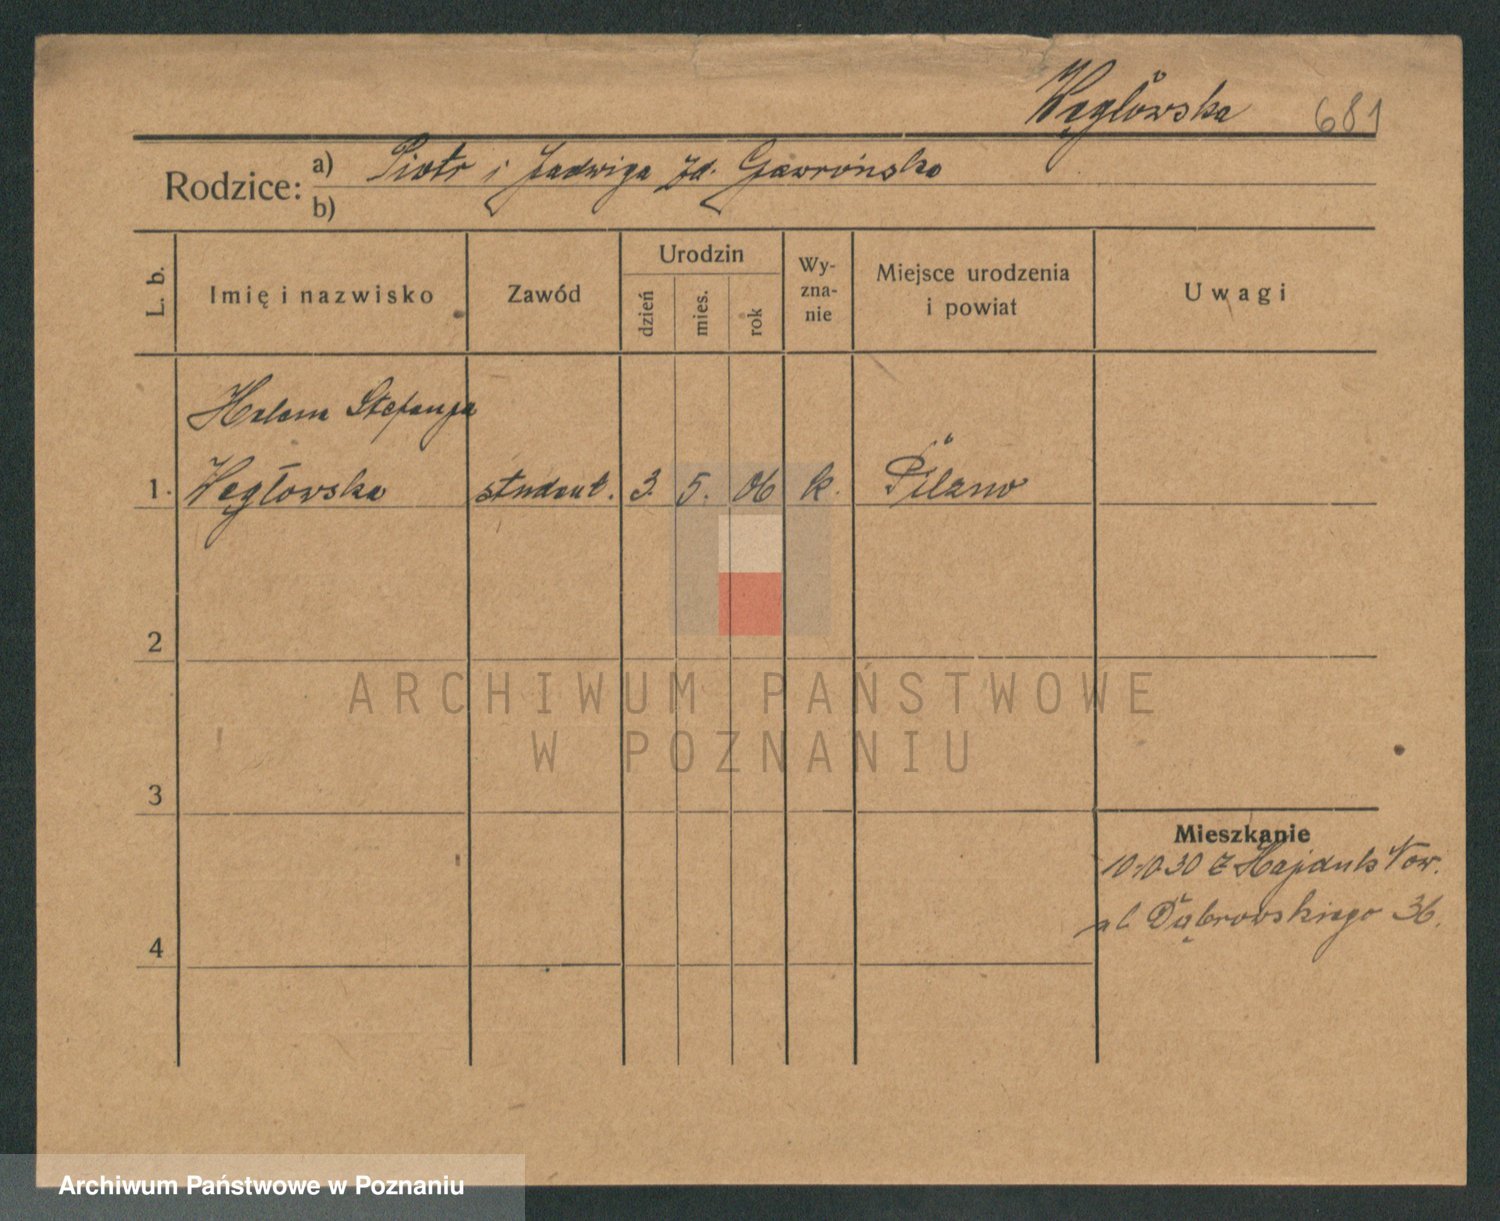 Węglowska 681
Rodzice: a) Piotr i Jadwiga zd. Gawrońska
b)
L. b. Imię i nazwisko Zawód Urodzin dzień mies. rok Wy-zna-nie Miejsce urodzenia i powiat Uwagi
Helena Stefanja
1. Węgłowska student. 3. 5. 06 k. Pilzno
2
ARCHIWUM PAŃSTWOWE
W POZNANIU
3
Mieszkanie
10.10.30 z Hajduk Now.
4
ul. Dąbrowskiego 36.
Archiwum Państwowe w Poznaniu